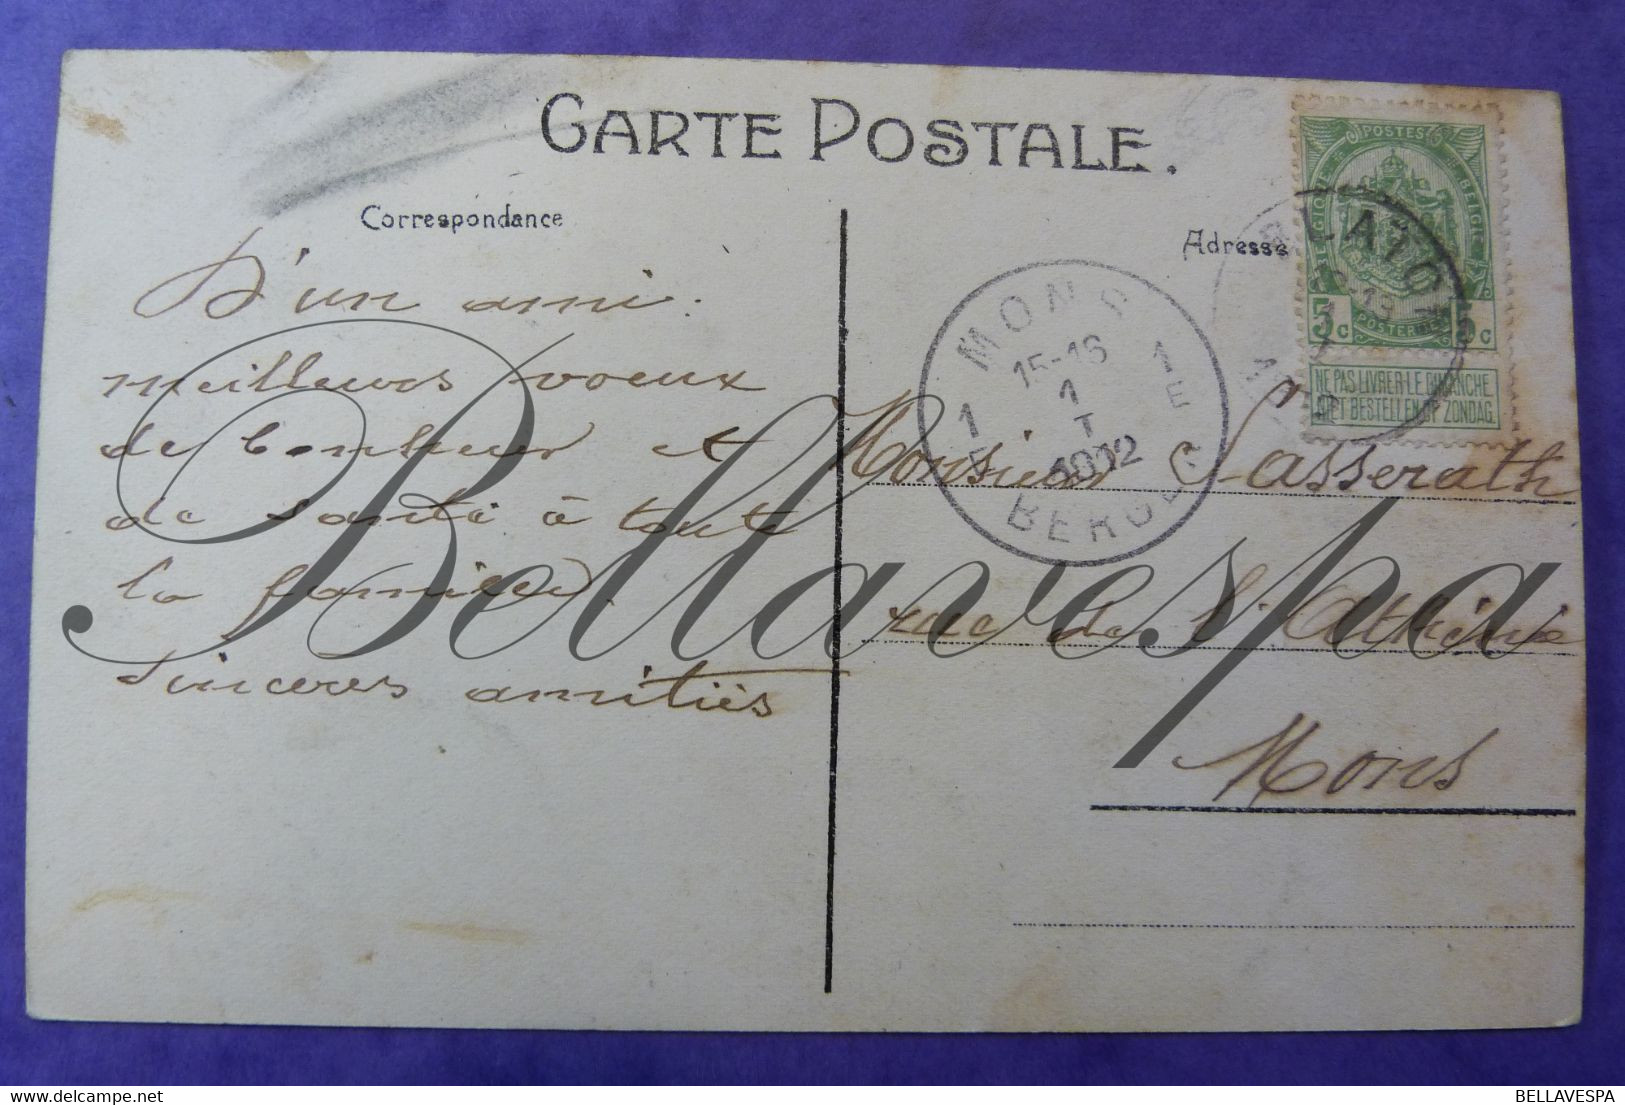 CARTE POSTALE.
Correspondance
Adresse
D'un ami.
meilleurs voeux
de bonheur et
de santé à toute
la famille.
sincères amitiés
Monsieur Casserath
rue de l'Athénée
Mons
POSTES
BELGIQUE
BELGIE
5c
POSTERIJEN
5c
NE PAS LIVRER LE DIMANCHE
NIET BESTELLEN OP ZONDAG
BLATON
MONS
15-16
1
1
1
BERGEN
Bellavespa
BELLAVESPA